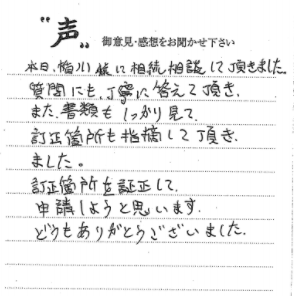 "声" 御意見・感想をお聞かせ下さい
本日、稲川様に相続相談して頂きました。
質問にも、丁寧に答えて頂き、
また、書類もしっかり見て、
訂正箇所も指摘して頂き、
ました。
訂正箇所を証正して、
申請しようと思います。
どうもありがとうございました。